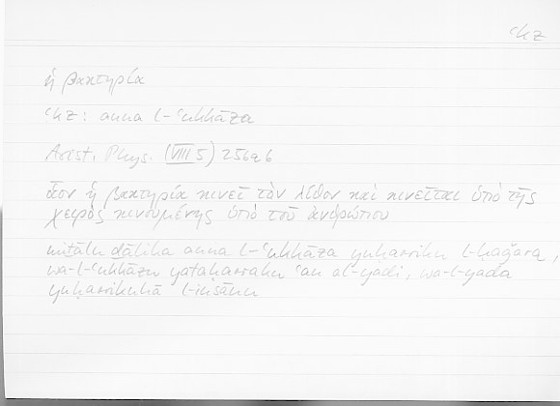 ʿkz
ἡ βακτηρία
ʿkz: anna l-ʿukkāza
Arist. Phys. (VIII 5) 256a6
οἷον ἡ βακτηρία κινεῖ τὸν λίθον καὶ κινεῖται ὑπὸ τῆς
χειρὸς κινουμένης ὑπὸ τοῦ ἀνθρώπου
miṯālu ḏālika anna l-ʿukkāza yuḥarriku l-ḥaǧara,
wa-l-ʿukkāzu yataḥarraku ʿan al-yadi, wa-l-yada
yuḥarrikuhā l-insānu